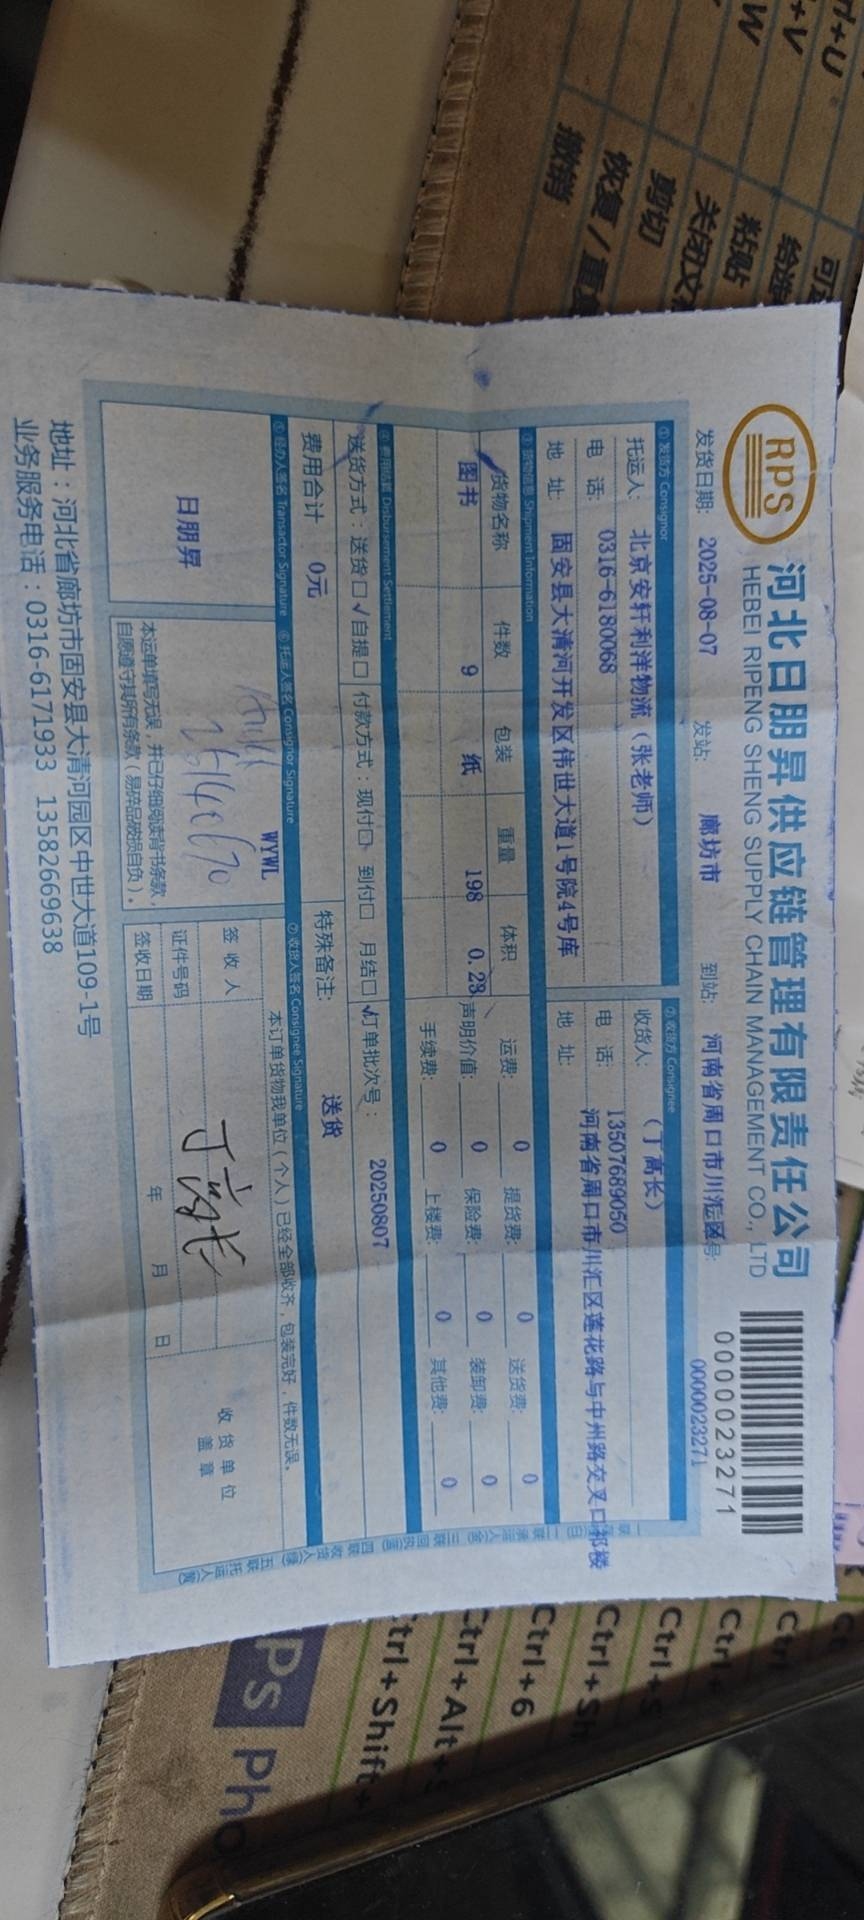 RPS
河北日朋昇供应链管理有限责任公司
HEBEI RIPENG SHENG SUPPLY CHAIN MANAGEMENT CO., LTD
0000023271
发货日期: 2025-08-07 发站: 廊坊市 到站: 河南省周口市川汇区 号: 0000023271
① 发货方 Consignor ② 收货方 Consignee
托运人: 北京安轩利洋物流(张老师) 收货人: (丁高长)
电 话: 0316-6180068 电 话: 13507689050
地 址: 固安县大清河开发区伟世大道1号院4号库 地 址: 河南省周口市川汇区莲花路与中州路交叉口祁楼
③ 货物信息 Shipment Information
货物名称 件数 包装 重量 体积 运费: 0 提货费: 0 送货费: 0
图书 9 纸 198 0.23 声明价值: 0 保险费: 0 装卸费: 0
手续费: 0 上楼费: 0 其他费: 0
④ 费用结算 Disbursement Settlement
送货方式:送货□√自提□ 付款方式:现付□ 到付□ 月结□√ 订单批次号: 20250807
费用合计 0元 特殊备注: 送货
⑤ 经办人签名 Transactor Signature ⑥ 托运人签名 Consignor Signature ⑦ 收货人签名 Consignee Signature
日朋昇
WYWL
本运单填写无误,并已仔细阅读背书条款,
自愿遵守其所有条款(易碎品破损自负)。
本订单货物我单位(个人)已经全部收齐,包装完好,件数无误。
签 收 人 丁高长
证件号码
签收日期 年 月 日
收 货 单 位
盖 章
地址:河北省廊坊市固安县大清河园区中世大道109-1号
业务服务电话:0316-6171933 13582669638
撤销
恢复/重
剪切
关闭文
粘贴
Ctrl+6
Ctrl+Sh
Ctrl+Alt+
Ctrl+Shift+
Ps Pho